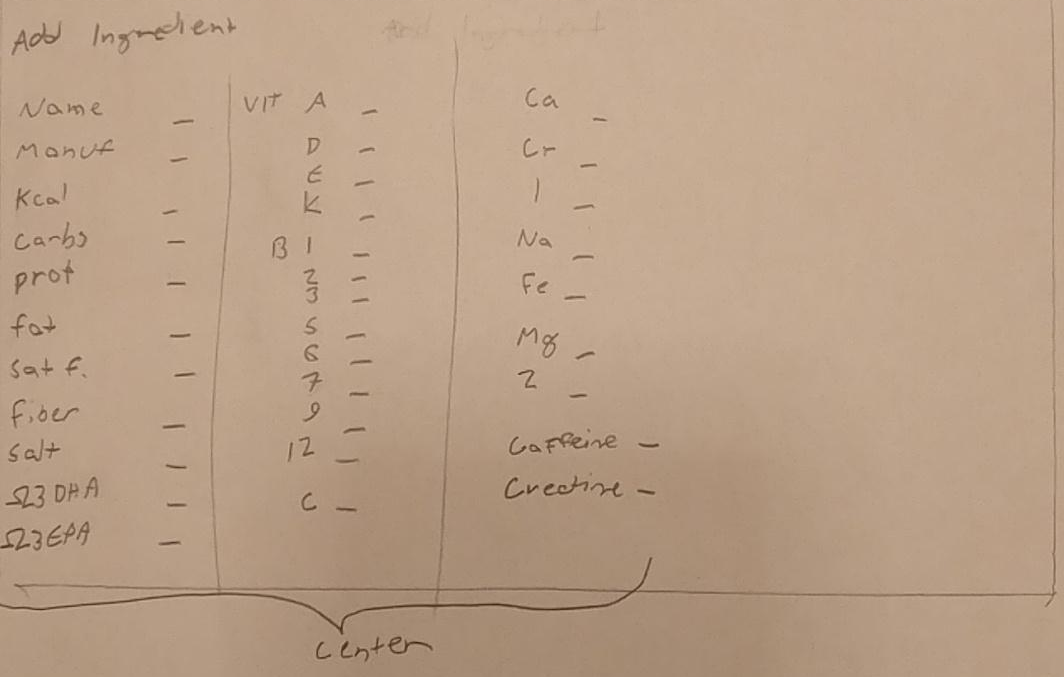 Add Ingredient
Name _
Manuf _
Kcal _
Carbs _
prot _
fat _
Sat f. _
fiber _
Salt _
Ω3 DHA _
Ω3 EPA _
VIT A _
D _
E _
K _
B 1 _
2 _
3 _
5 _
6 _
7 _
9 _
12 _
C _
Ca _
Cr _
I _
Na _
Fe _
Mg _
Z _
Caffeine _
Creatine _
Center